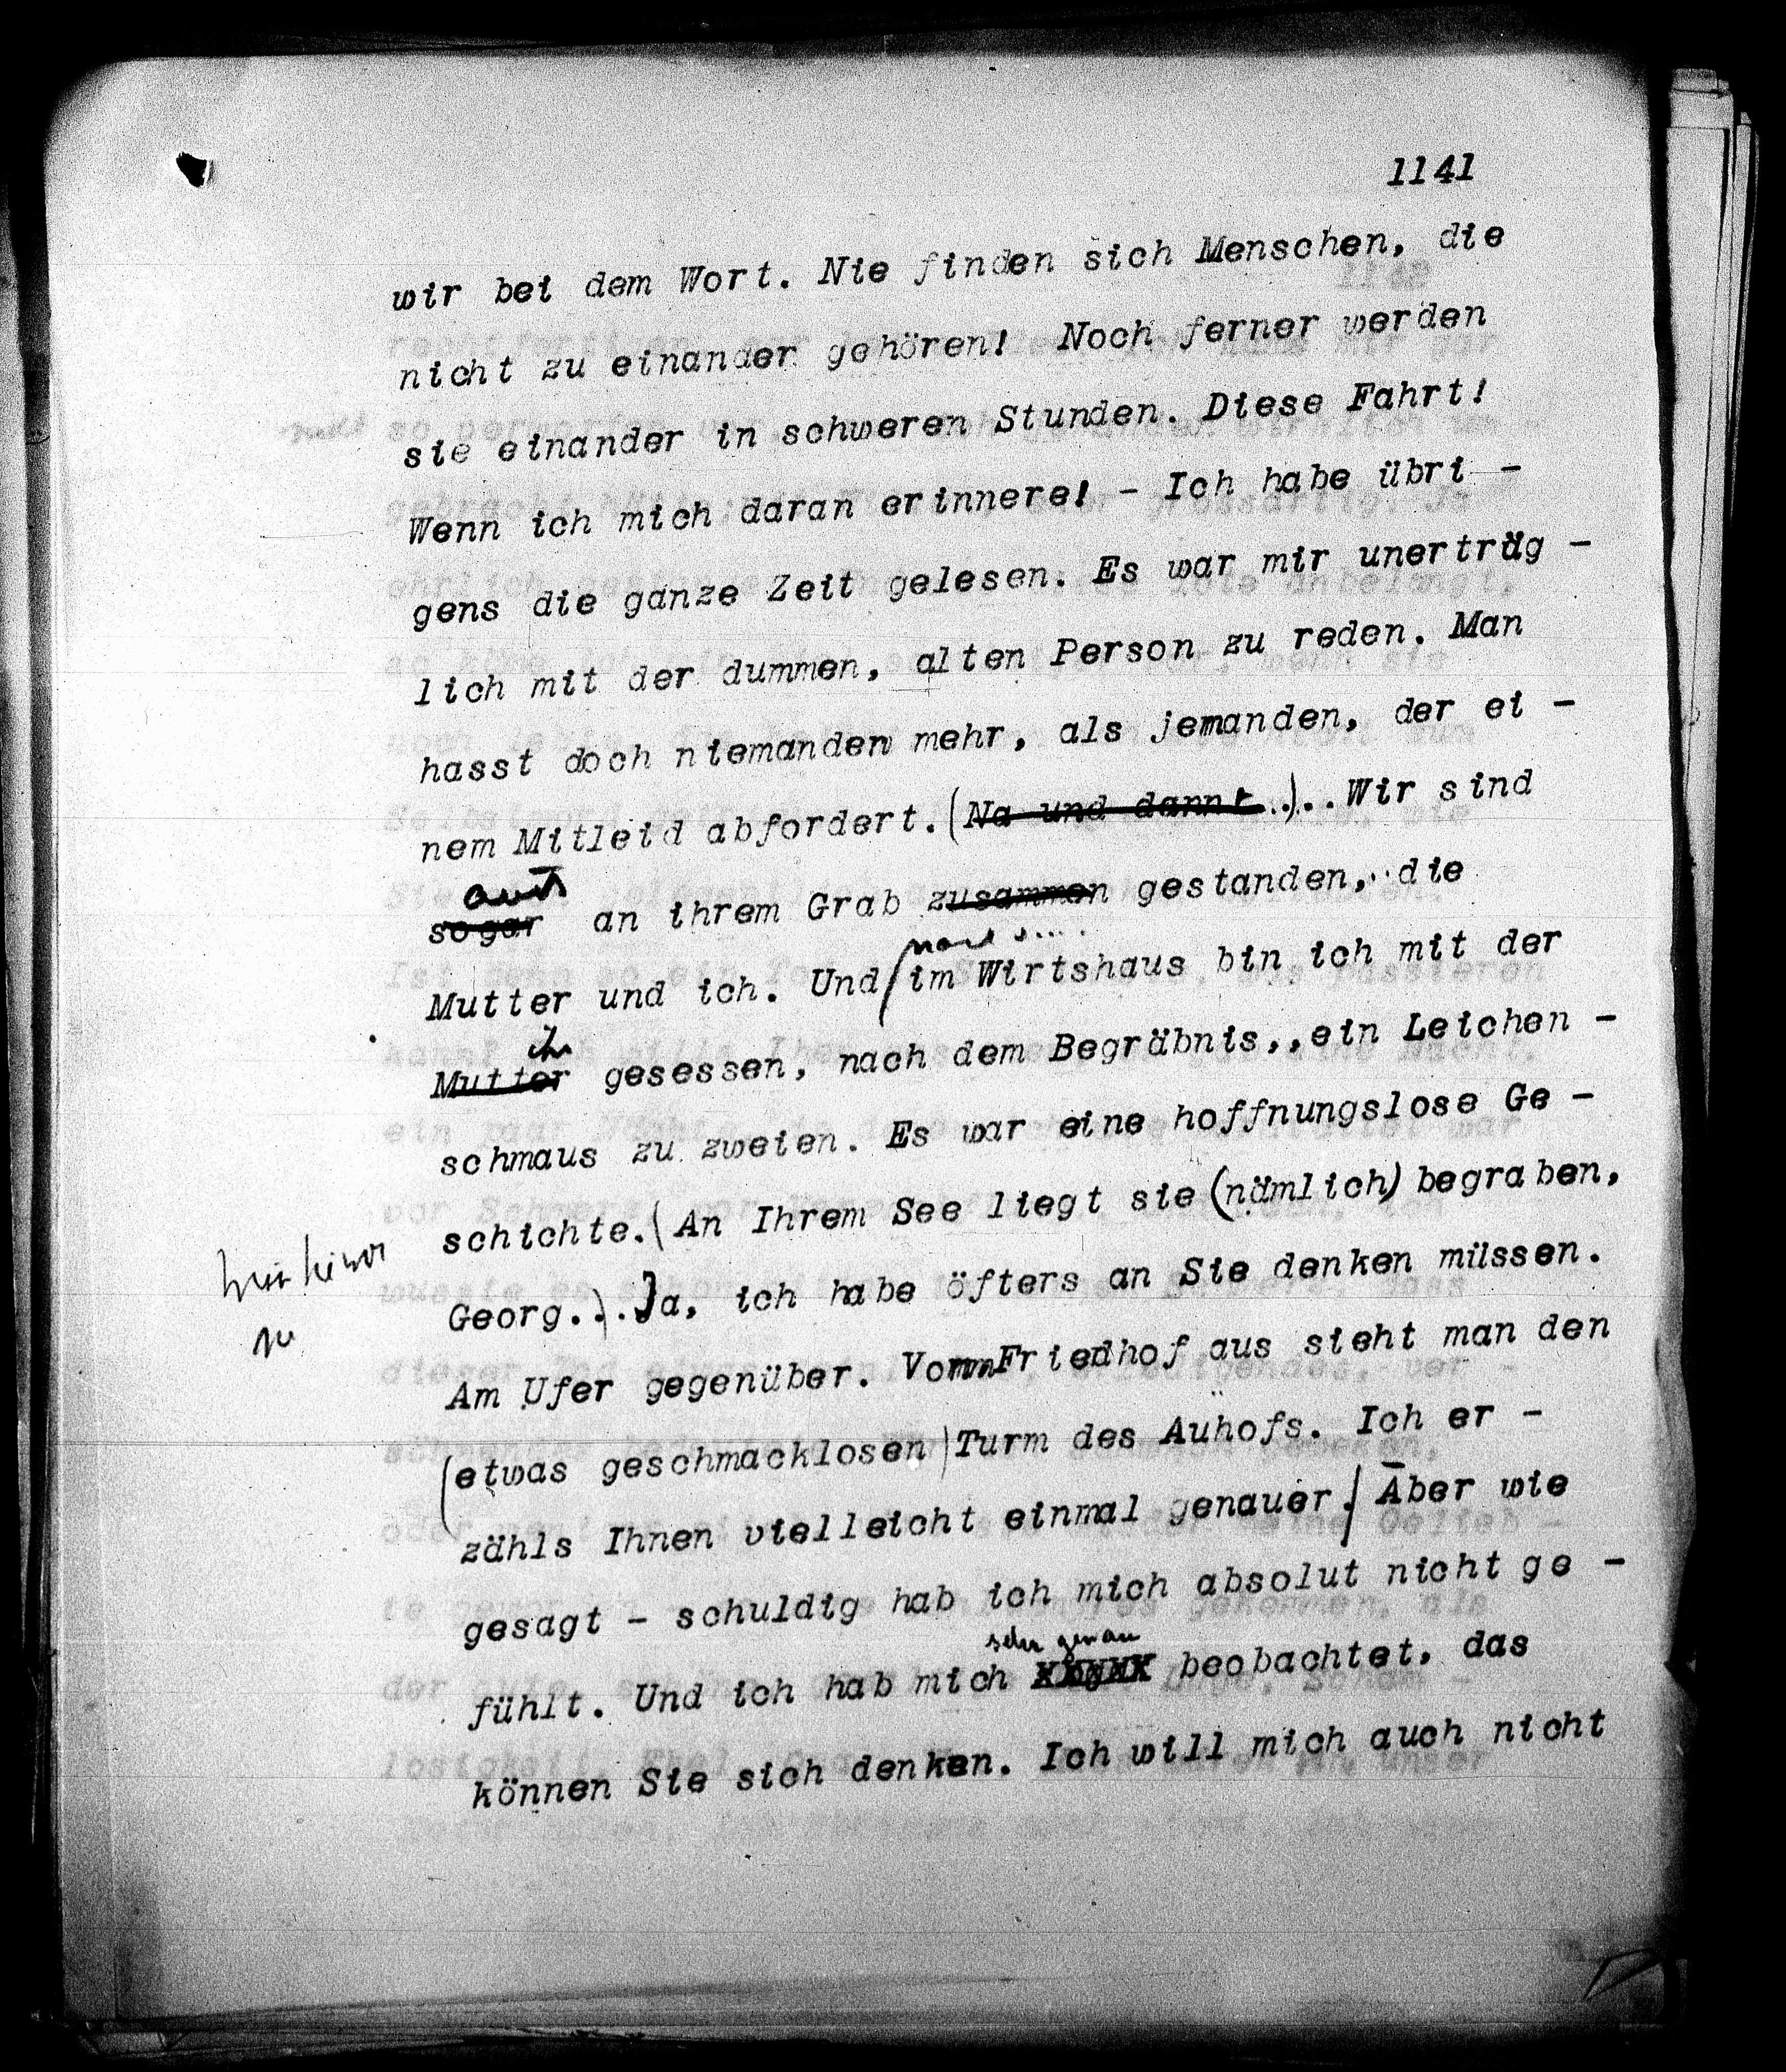 1141
wir bei dem Wort. Nie finden sich Menschen, die
nicht zu einander gehören! Noch ferner werden
sie einander in schweren Stunden. Diese Fahrt!
Wenn ich mich daran erinnere! - Ich habe übri -
gens die ganze Zeit gelesen. Es war mir unerträg -
lich mit der dummen, alten Person zu reden. Man
hasst doch niemanden mehr, als jemanden, der ei -
nem Mitleid abfordert. (Na und dann ..)..Wir sind
auch
sogar an ihrem Grab zusammen gestanden, die
Mutter und ich. Und (im Wirtshaus bin ich mit der
ihr
Mutter gesessen, nach dem Begräbnis,,ein Leichen -
schmaus zu zweien. Es war eine hoffnungslose Ge -
schichte.(An Ihrem See liegt sie (nämlich) begraben,
Georg..).Ja, ich habe öfters an Sie denken müssen.
Am Ufer gegenüber. Vom Friedhof aus sieht man den
(etwas geschmacklosen) Turm des Auhofs. Ich er -
zähls Ihnen vielleicht einmal genauer.) Aber wie
gesagt - schuldig hab ich mich absolut nicht ge -
sehr genau
fühlt. Und ich hab mich beobachtet, das
können Sie sich denken. Ich will mich auch nicht